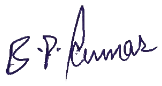 B.P. Kumar